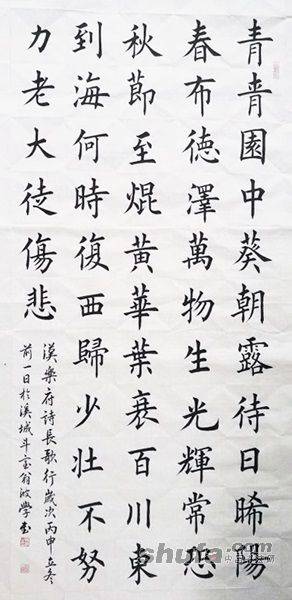 青青園中葵朝露待日晞陽
春布德澤萬物生光輝常恐
秋節至焜黃華葉衰百川東
到海何時復西歸少壯不努
力老大徒傷悲
漢樂府詩長歌行歲次丙申立冬
前一日於溪城斗室翁學書
shufa.com